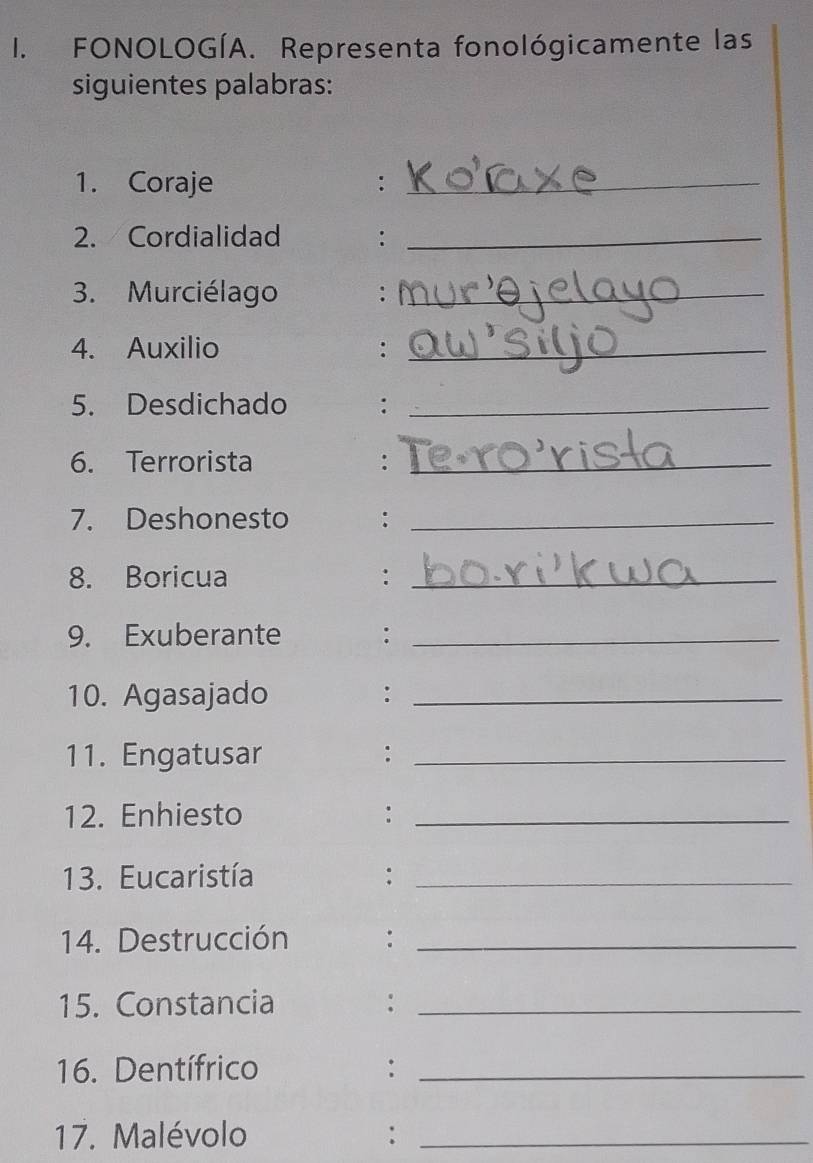 I. FONOLOGÍA. Representa fonológicamente las
siguientes palabras:
1. Coraje : Ko'raxe
2. Cordialidad :
3. Murciélago : mur'θjelayo
4. Auxilio : aw'siljo
5. Desdichado :
6. Terrorista : Te.ro'rista
7. Deshonesto :
8. Boricua : bo.ri'kwa
9. Exuberante :
10. Agasajado :
11. Engatusar :
12. Enhiesto :
13. Eucaristía :
14. Destrucción :
15. Constancia :
16. Dentífrico :
17. Malévolo :